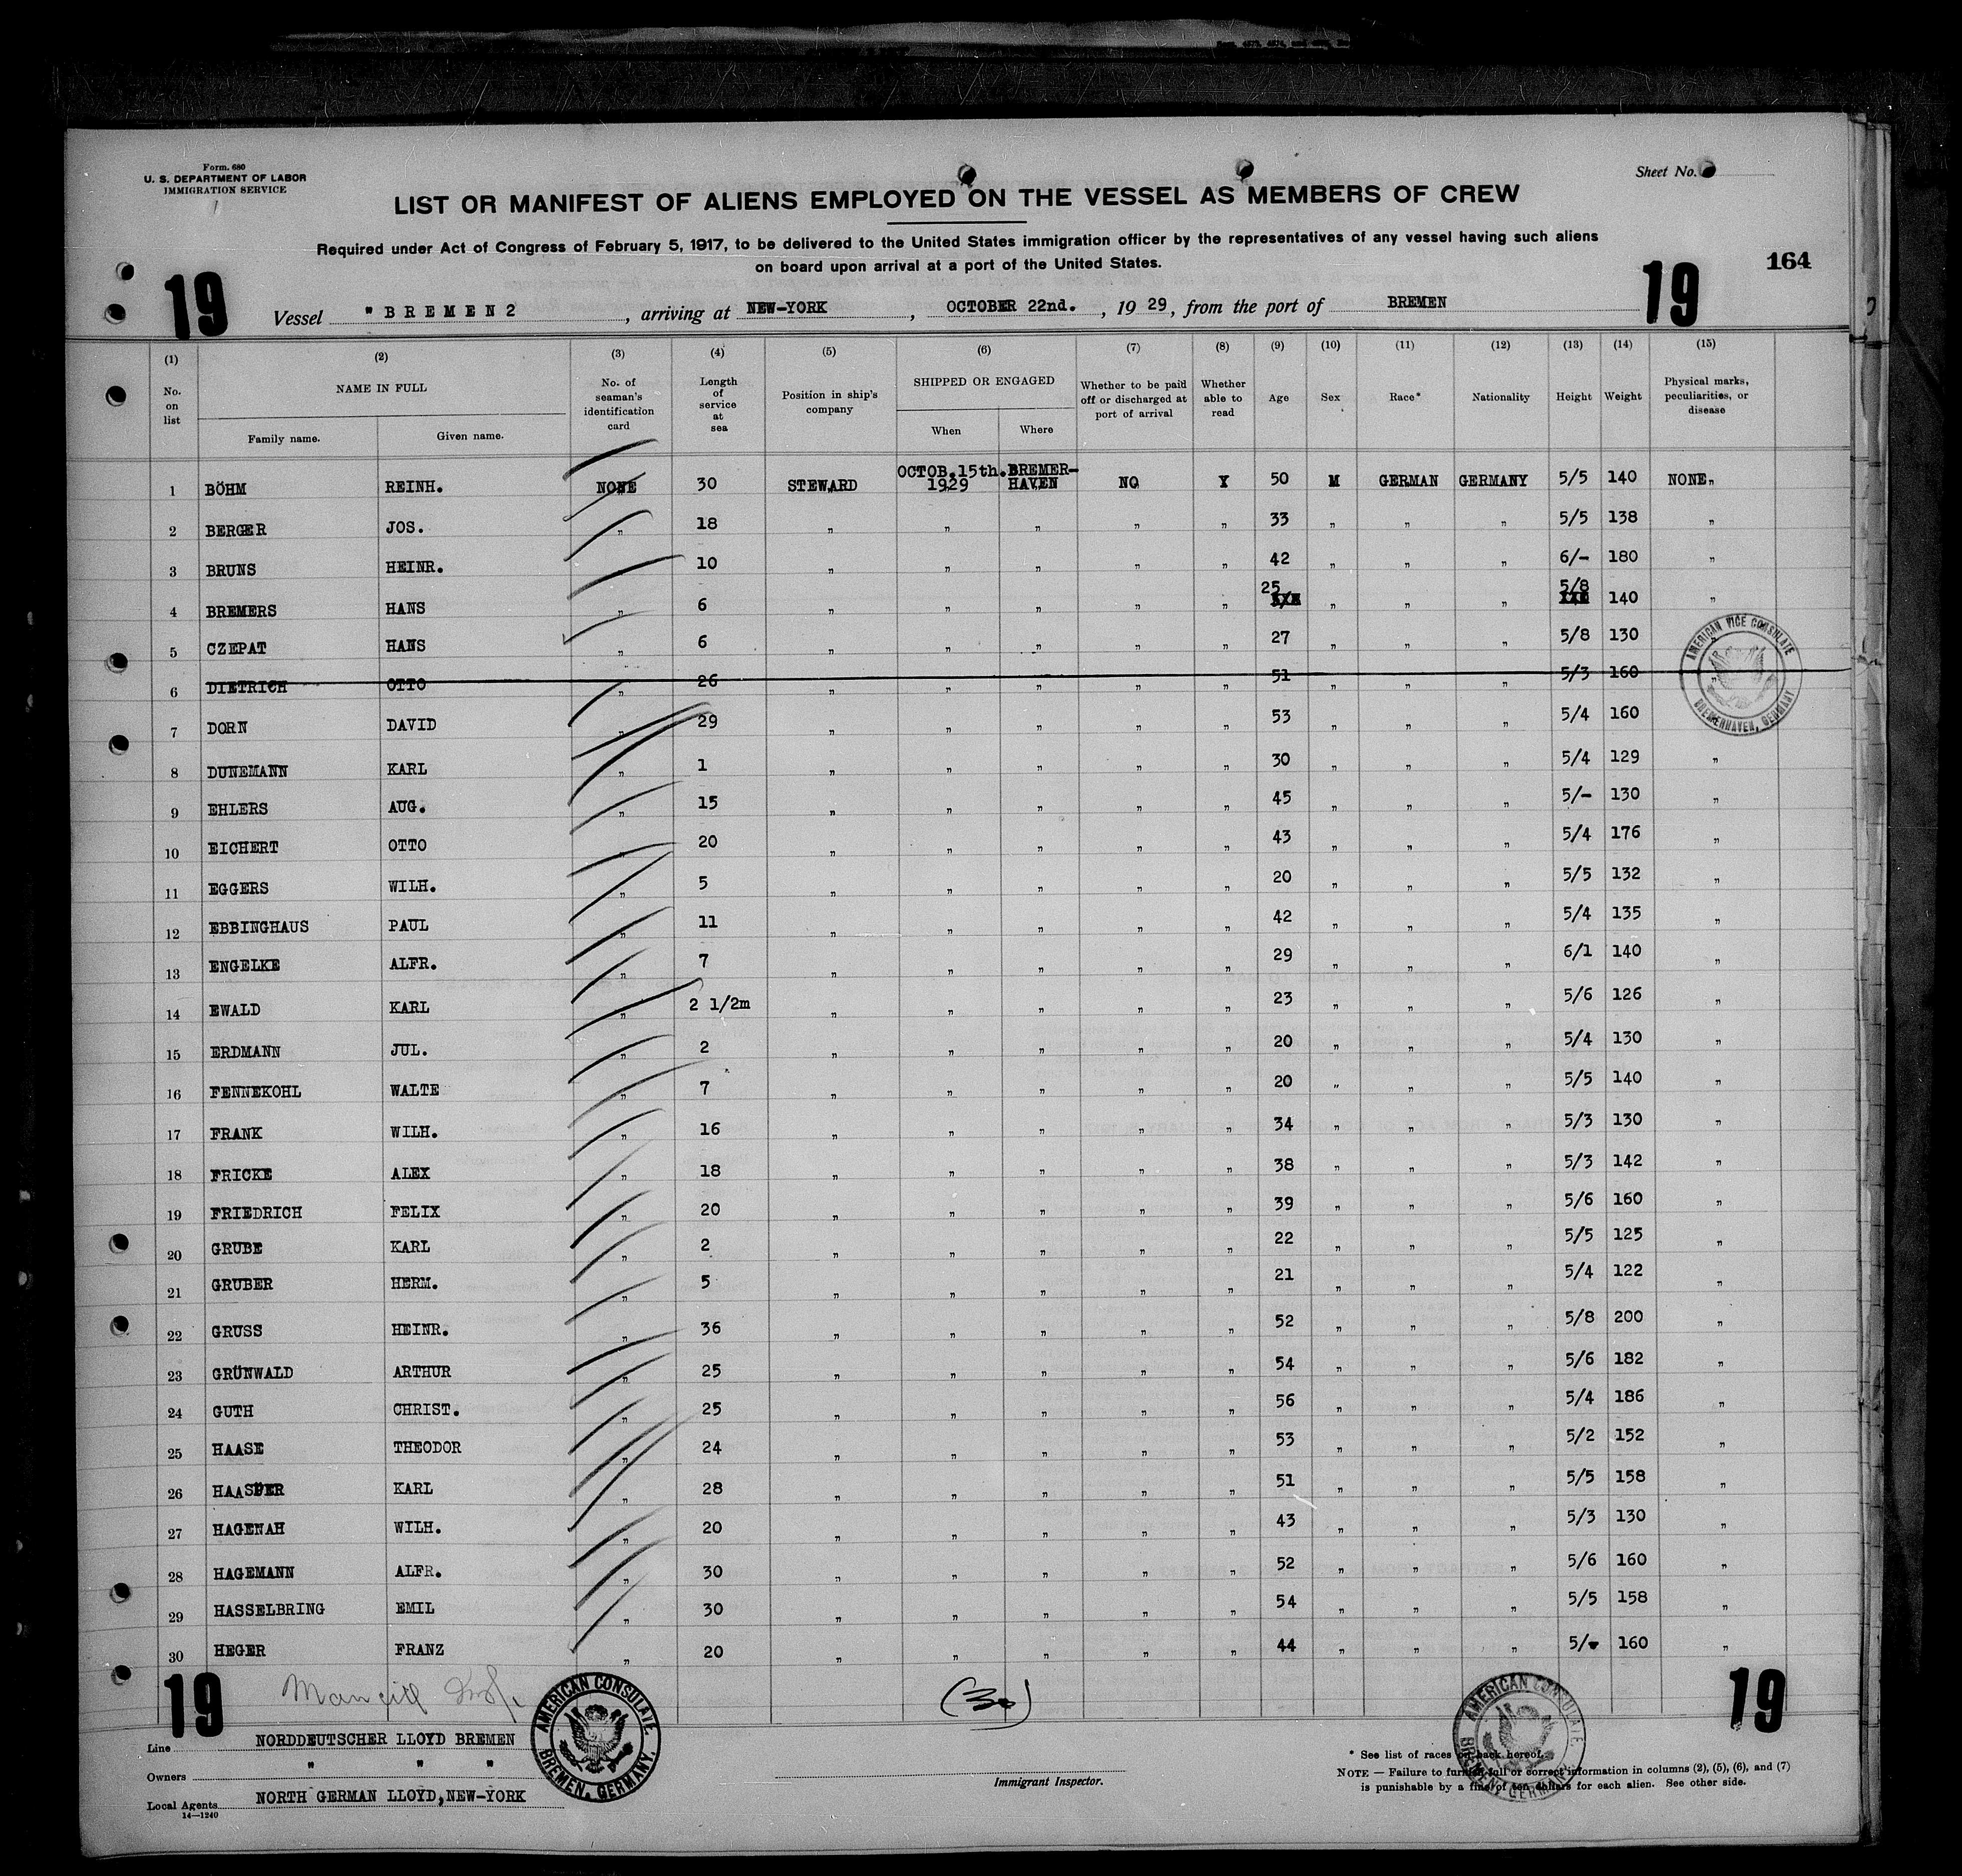 Form. 680
U. S. DEPARTMENT OF LABOR
IMMIGRATION SERVICE
Sheet No.
LIST OR MANIFEST OF ALIENS EMPLOYED ON THE VESSEL AS MEMBERS OF CREW
Required under Act of Congress of February 5, 1917, to be delivered to the United States immigration officer by the representatives of any vessel having such aliens
on board upon arrival at a port of the United States.
164
19 19
Vessel "BREMEN2, arriving at NEW-YORK, OCTOBER 22nd., 1929, from the port of BREMEN
(1) (2) (3) (4) (5) (6) (7) (8) (9) (10) (11) (12) (13) (14) (15)
No. on list NAME IN FULL Family name. Given name. No. of seaman's identification card Length of service at sea Position in ship's company SHIPPED OR ENGAGED When Where Whether to be paid off or discharged at port of arrival Whether able to read Age Sex Race* Nationality Height Weight Physical marks, peculiarities, or disease
1 BÖHM REINH. NONE 30 STEWARD OCTOB.15th. 1929 BREMER-HAVEN NO Y 50 M GERMAN GERMANY 5/5 140 NONE"
2 BERGER JOS. " 18 " " " " " 33 " " " 5/5 138 "
3 BRUNS HEINR. " 10 " " " " " 42 " " " 6/- 180 "
4 BREMERS HANS " 6 " " " " " 25 " " " 5/8 140 "
5 CZEPAT HANS " 6 " " " " " 27 " " " 5/8 130 "
6 DIETRICH OTTO " 26 " " " " " 51 " " " 5/3 160 "
7 DORN DAVID " 29 " " " " " 53 " " " 5/4 160 "
8 DUNEMANN KARL " 1 " " " " " 30 " " " 5/4 129 "
9 EHLERS AUG. " 15 " " " " " 45 " " " 5/- 130 "
10 EICHERT OTTO " 20 " " " " " 43 " " " 5/4 176 "
11 EGGERS WILH. " 5 " " " " " 20 " " " 5/5 132 "
12 EBBINGHAUS PAUL " 11 " " " " " 42 " " " 5/4 135 "
13 ENGELKE ALFR. " 7 " " " " " 29 " " " 6/1 140 "
14 EWALD KARL " 2 1/2m " " " " " 23 " " " 5/6 126 "
15 ERDMANN JUL. " 2 " " " " " 20 " " " 5/4 130 "
16 FENNEKOHL WALTE " 7 " " " " " 20 " " " 5/5 140 "
17 FRANK WILH. " 16 " " " " " 34 " " " 5/3 130 "
18 FRICKE ALEX " 18 " " " " " 38 " " " 5/3 142 "
19 FRIEDRICH FELIX " 20 " " " " " 39 " " " 5/6 160 "
20 GRUBE KARL " 2 " " " " " 22 " " " 5/5 125 "
21 GRUBER HERM. " 5 " " " " " 21 " " " 5/4 122 "
22 GRUSS HEINR. " 36 " " " " " 52 " " " 5/8 200 "
23 GRÜNWALD ARTHUR " 25 " " " " " 54 " " " 5/6 182 "
24 GUTH CHRIST. " 25 " " " " " 56 " " " 5/4 186 "
25 HAASE THEODOR " 24 " " " " " 53 " " " 5/2 152 "
26 KARL " 28 " " " " " 51 " " " 5/5 158 "
27 HAGENAH WILH. " 20 " " " " " 43 " " " 5/3 130 "
28 HAGEMANN ALFR. " 30 " " " " " 52 " " " 5/6 160 "
29 HASSELBRING EMIL " 30 " " " " " 54 " " " 5/5 158 "
30 HEGER FRANZ " 20 " " " " " 44 " " " 5/ 160 "
AMERICAN VICE CONSULATE BREMERHAVEN, GERMANY
19 (30) 19
AMERICAN CONSULATE BREMEN, GERMANY.
AMERICAN CONSULATE BREMEN, GERMANY
Line NORDDEUTSCHER LLOYD BREMEN
Owners " " "
Local Agents NORTH GERMAN LLOYD,NEW-YORK
14—1240
Immigrant Inspector.
* See list of races on back hereof.
NOTE — Failure to furnish full or correct information in columns (2), (5), (6), and (7)
is punishable by a fine of ten dollars for each alien. See other side.